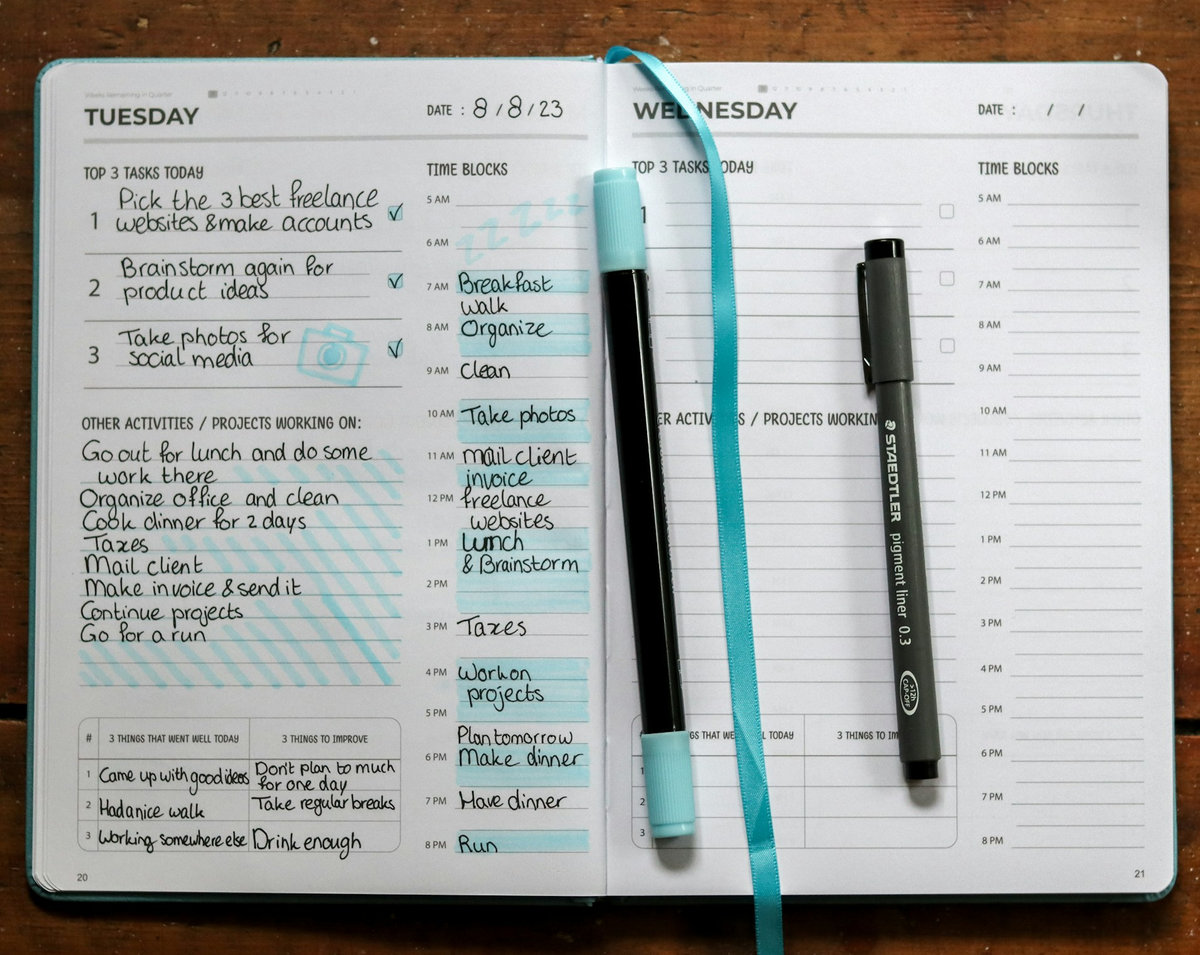 Weeks Remaining in Quarter
TUESDAY
DATE : 8 / 8 / 23
TOP 3 TASKS TODAY
1 Pick the 3 best freelance
websites & make accounts
2 Brainstorm again for
product ideas
3 Take photos for
social media
OTHER ACTIVITIES / PROJECTS WORKING ON:
Go out for lunch and do some
work there
Organize office and clean
Cook dinner for 2 days
Taxes
Mail client
Make invoice & send it
Continue projects
Go for a run
# 3 THINGS THAT WENT WELL TODAY 3 THINGS TO IMPROVE
1 Came up with good ideas Don't plan to much
for one day
2 Had a nice walk Take regular breaks
3 Working somewhere else Drink enough
20
TIME BLOCKS
5 AM
zzzzz
6 AM
7 AM Breakfast
walk
8 AM Organize
9 AM Clean
10 AM Take photos
11 AM mail client
invoice
12 PM freelance
websites
1 PM Lunch
& Brainstorm
2 PM
3 PM Taxes
4 PM Work on
projects
5 PM
Plan tomorrow
6 PM Make dinner
7 PM Have dinner
8 PM Run
in Quarter
WEDNESDAY
DATE : / /
TOP 3 TASKS TODAY
1
ACTIVITIES / PROJECTS WORKING
WENT WELL TODAY 3 THINGS TO
1
2
3
TIME BLOCKS
5 AM
6 AM
7 AM
8 AM
9 AM
10 AM
11 AM
12 PM
1 PM
2 PM
3 PM
4 PM
5 PM
6 PM
7 PM
8 PM
21
STAEDTLER pigment liner 0.3
>12h
CAP-OFF